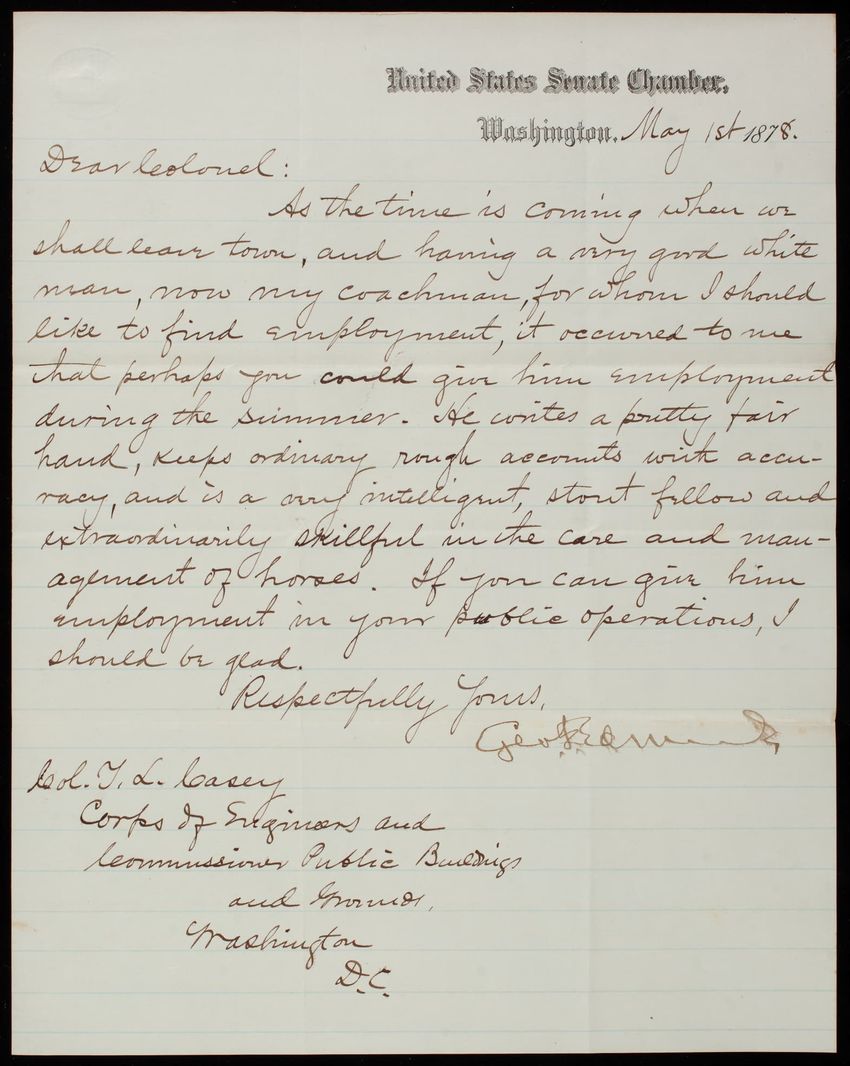 United States Senate Chamber,
Washington, May 1st 1878.
Dear Colonel:
As the time is coming when we
shall leave town, and having a very good white
man, now my coachman, for whom I should
like to find employment, it occurred to me
that perhaps you could give him employment
during the summer. He writes a pretty fair
hand, keeps ordinary rough accounts with accu-
racy, and is a very intelligent, stout fellow and
extraordinarily skillful in the care and man-
agement of horses. If you can give him
employment in your public operations, I
should be glad.
Respectfully Yours,
Geo F Edmunds
Col. T. L. Casey
Corps of Engineers and
Commissioner Public Buildings
and Grounds,
Washington
D.C.